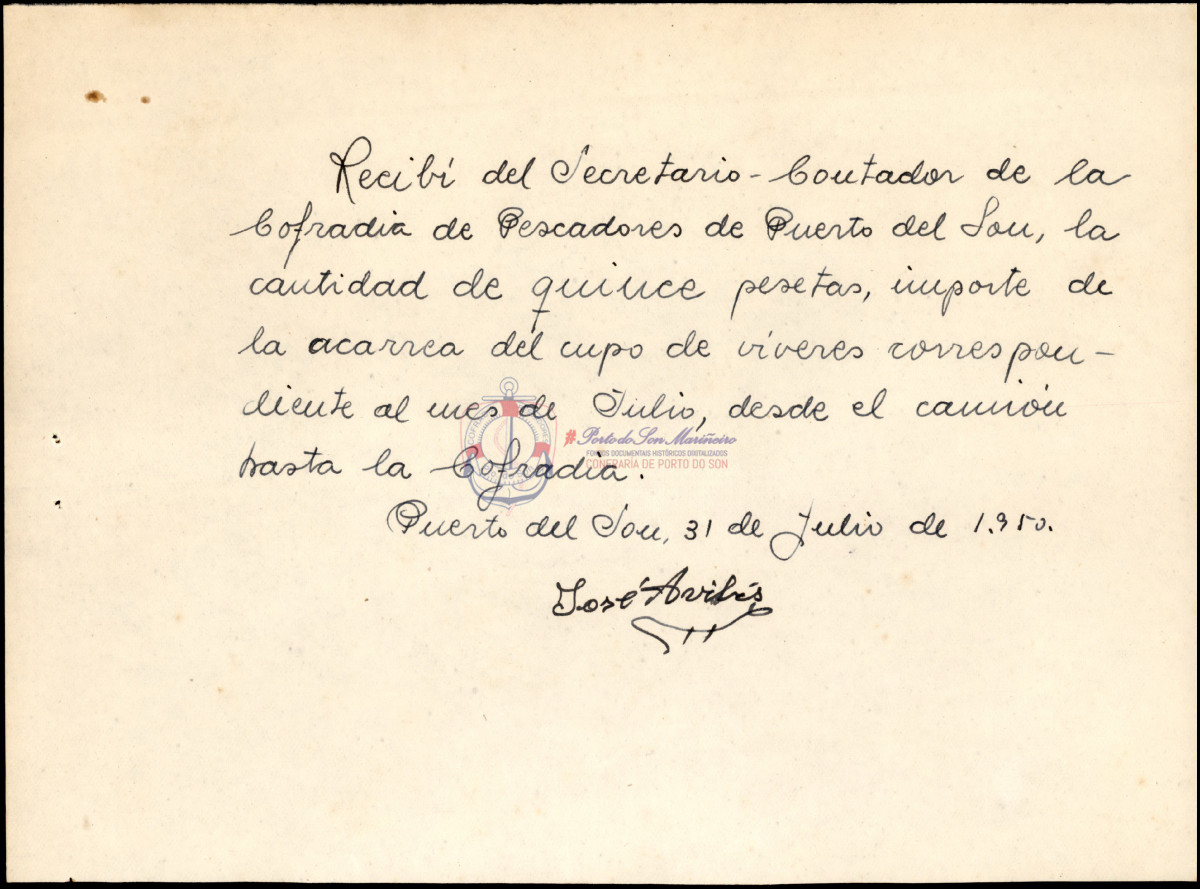 Recibí del Secretario-Contador de la
Cofradia de Pescadores de Puerto del Son, la
cantidad de quince pesetas, importe de
la acarrea del cupo de víveres correspon-
diente al mes de Julio, desde el camión
hasta la Cofradía.
#Porto do Son Mariñeiro
FONDOS DOCUMENTAIS HISTÓRICOS DIXITALIZADOS
CONFRARÍA DE PORTO DO SON
Puerto del Son, 31 de Julio de 1.950.
José Avilés